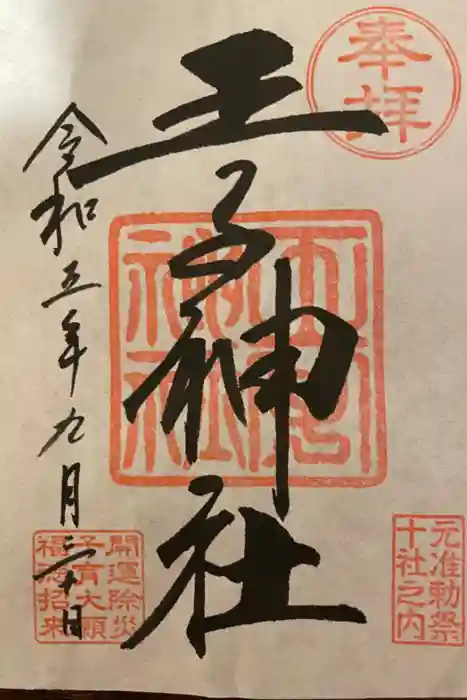 奉拝
元准勅祭
十社之内
王子神社
令和五年九月二十日
開運除災
子育大願
福徳招来